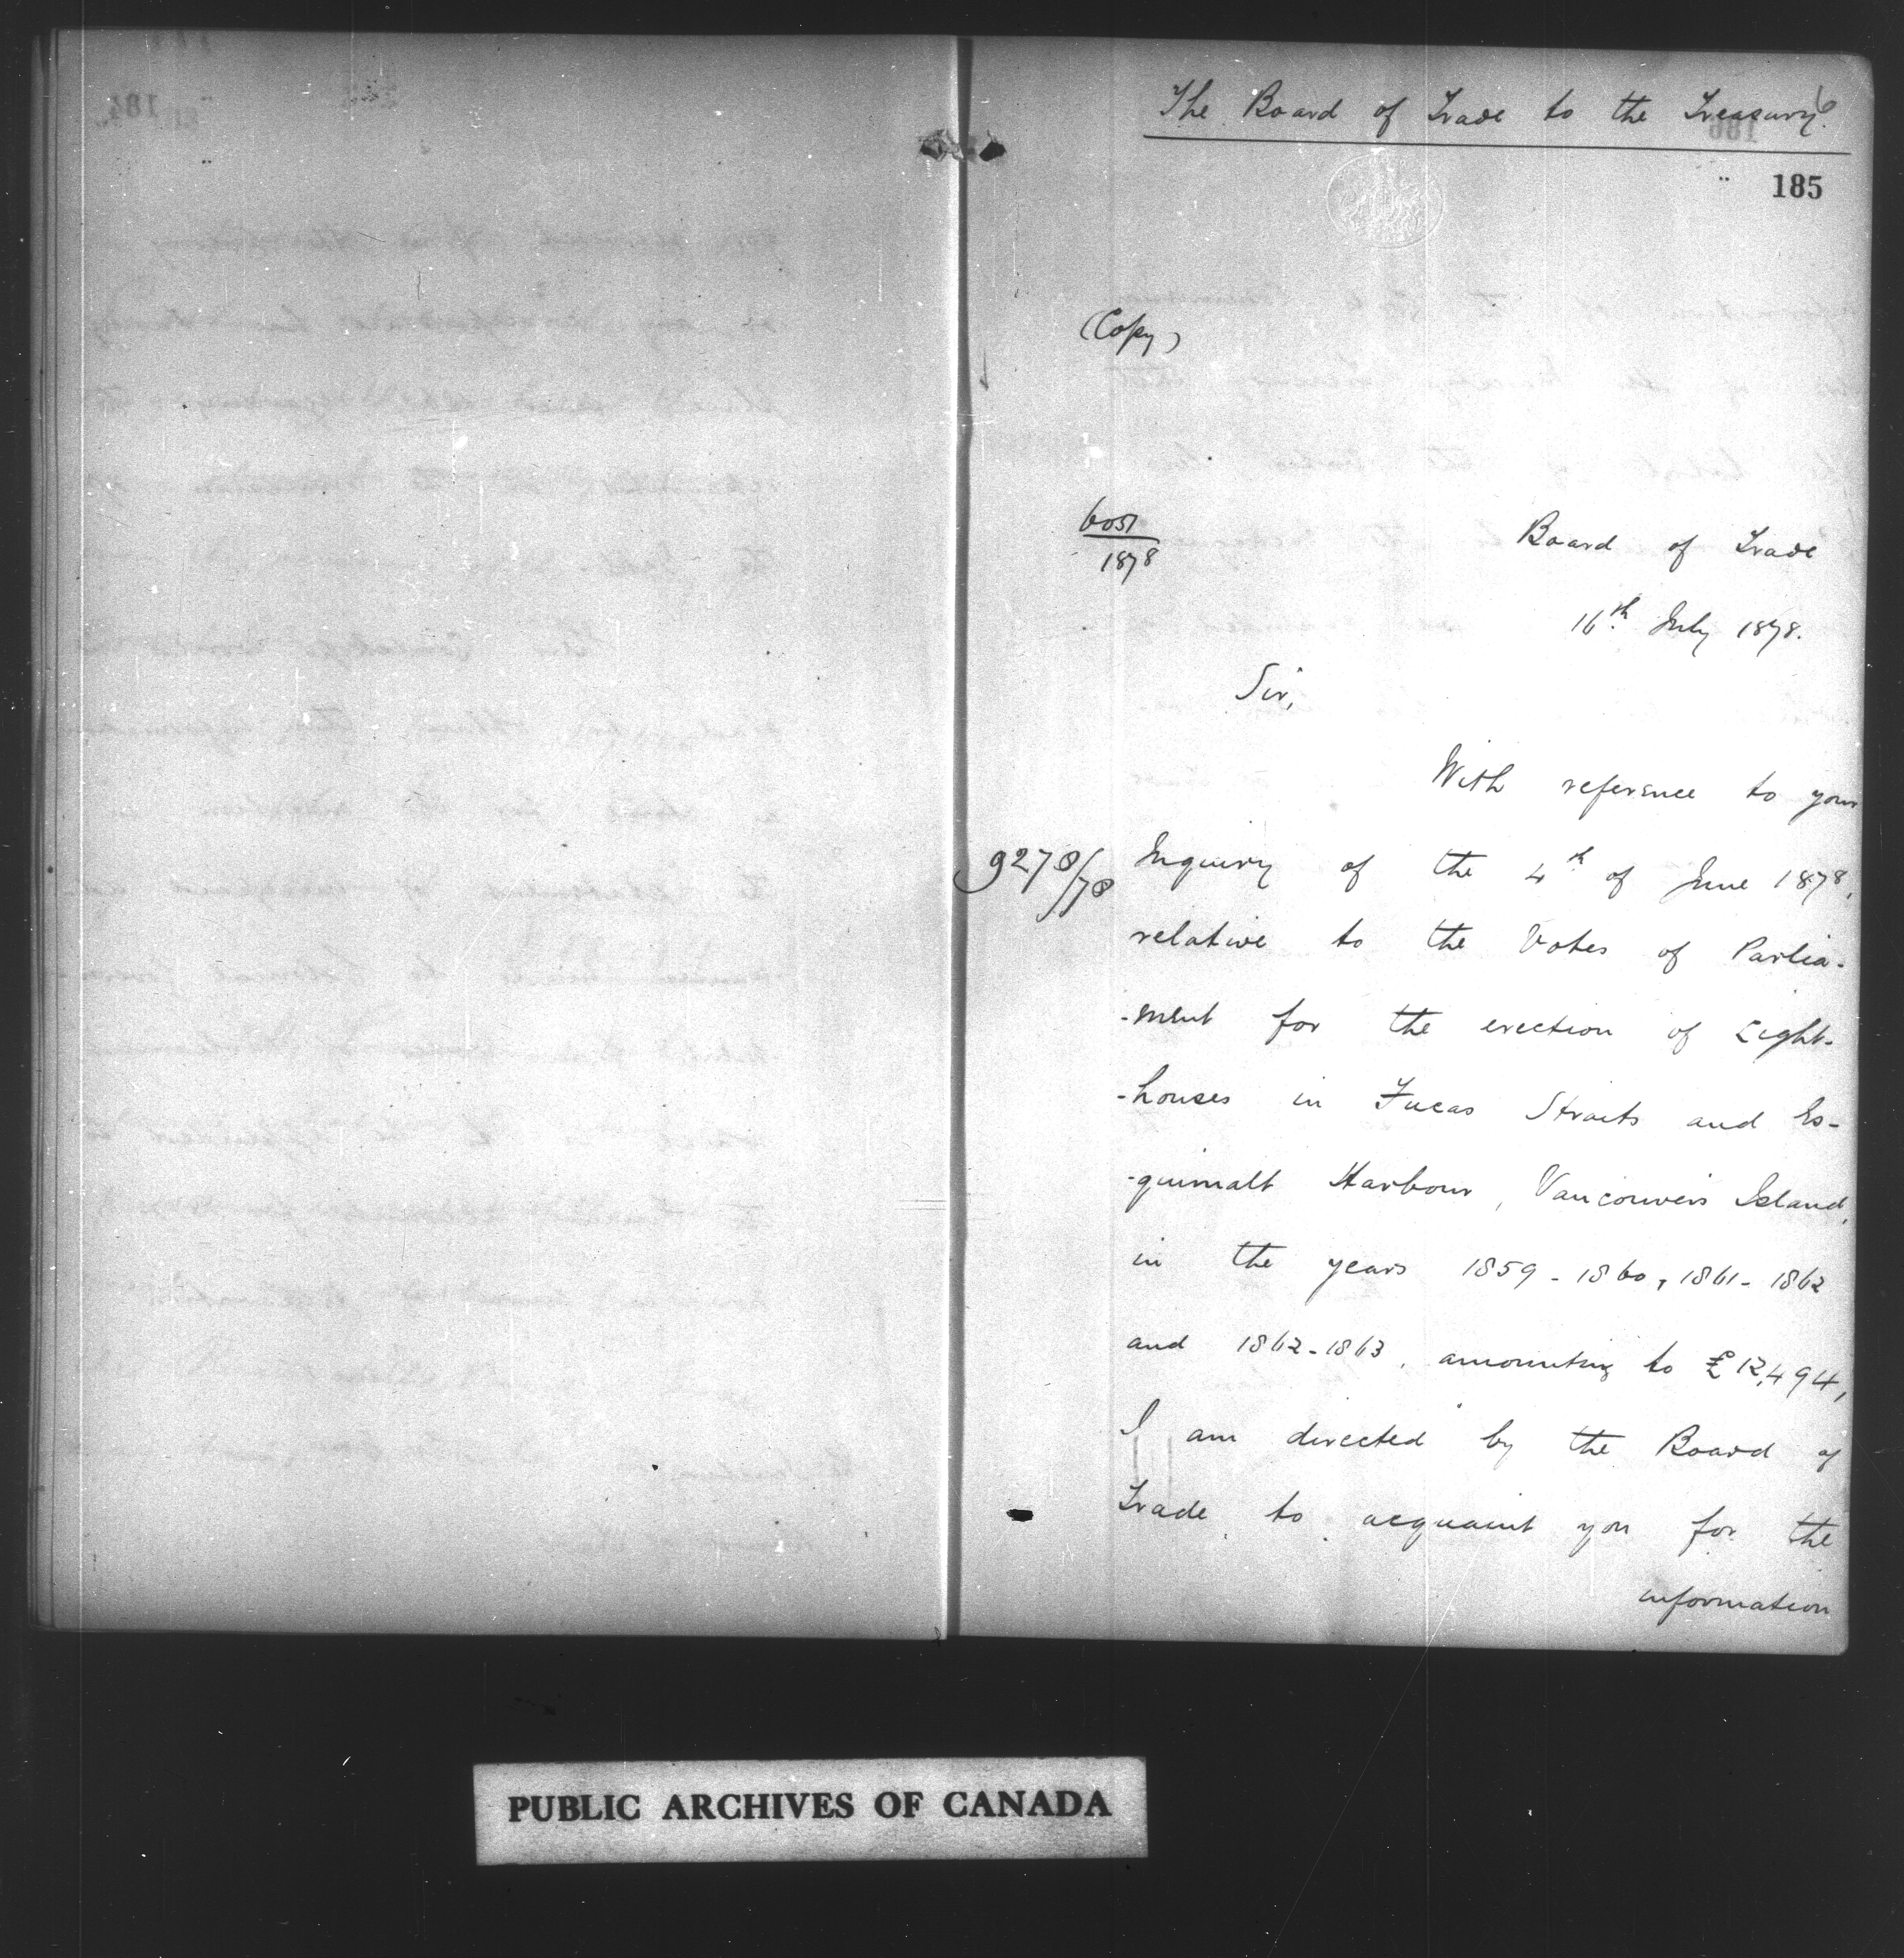 The Board of Trade to the Treasury.
6
185
(Copy)
6051
1878
Board of Trade
16th July 1878.
Sir,
With reference to your
9278/78
Inquiry of the 4th of June 1878,
relative to the Votes of Parlia-
-ment for the erection of Light-
-houses in Fucas Straits and Es-
-quimalt Harbour, Vancouvers Island,
in the years 1859-1860, 1861-1862
and 1862-1863, amounting to £12,494,
I am directed by the Board of
Trade to acquaint you for the
information
PUBLIC ARCHIVES OF CANADA